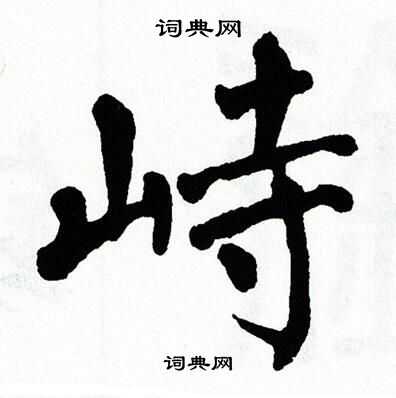 词典网
峙
词典网